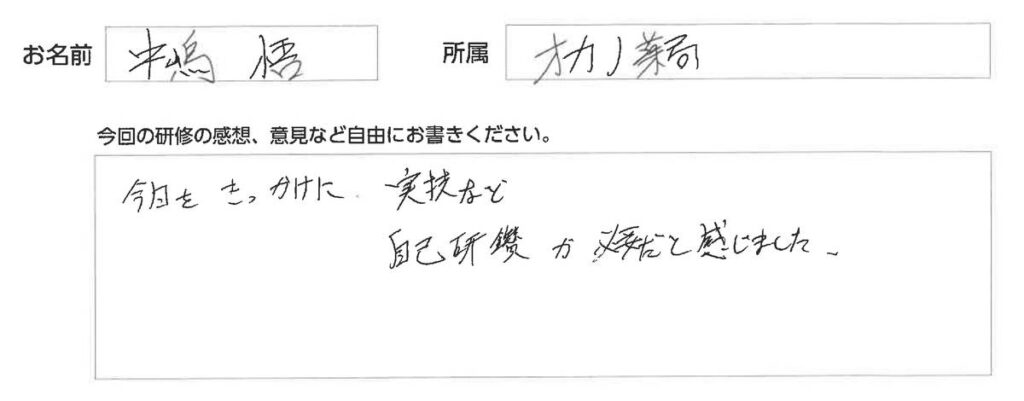 お名前 中嶋 悟 所属 オカノ薬局
今回の研修の感想、意見など自由にお書きください。
今日を きっかけに 実技など
自己研鑽 が 必要だと感じました。